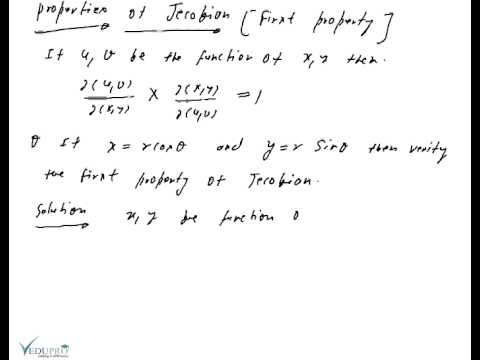 properties of Jecobion [First property]
If u, v be the function of x, y then.
∂(u,v)/∂(x,y) × ∂(x,y)/∂(u,v) = 1
If x = r cosθ and y = r sinθ then verify
the first property of Jecobion.
Solution x, y be function o
VEDUPRO